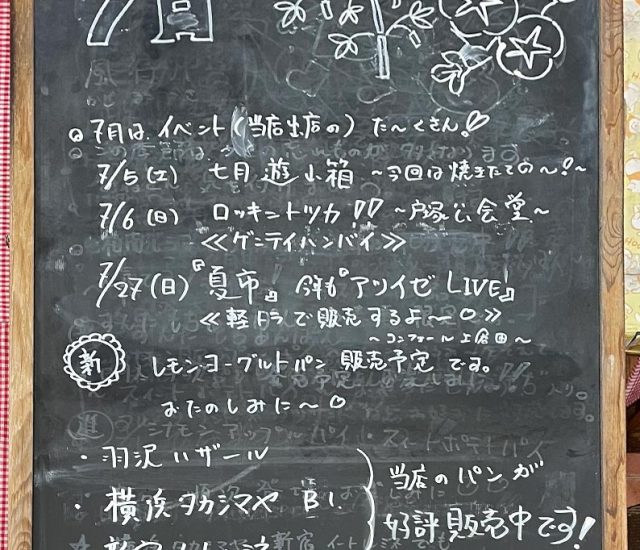 7月
7月は イベント(当店出店の) た〜くさん!
7/5(土) 七月 遊小箱 〜今回は焼きたての〜!〜
7/6(日) ロッキントツカ!! 〜戸塚公会堂〜
≪ゲンテイハンバイ≫
7/27(日)『夏市』 今年も『アツイゼ LIVE』
≪軽トラで販売するよ〜≫
〜コンフォール上倉田〜
新 レモンヨーグルトパン 販売予定です。
おたのしみに〜
・羽沢バザール
・横浜タカシマヤ B1
当店のパンが
好評販売中です!